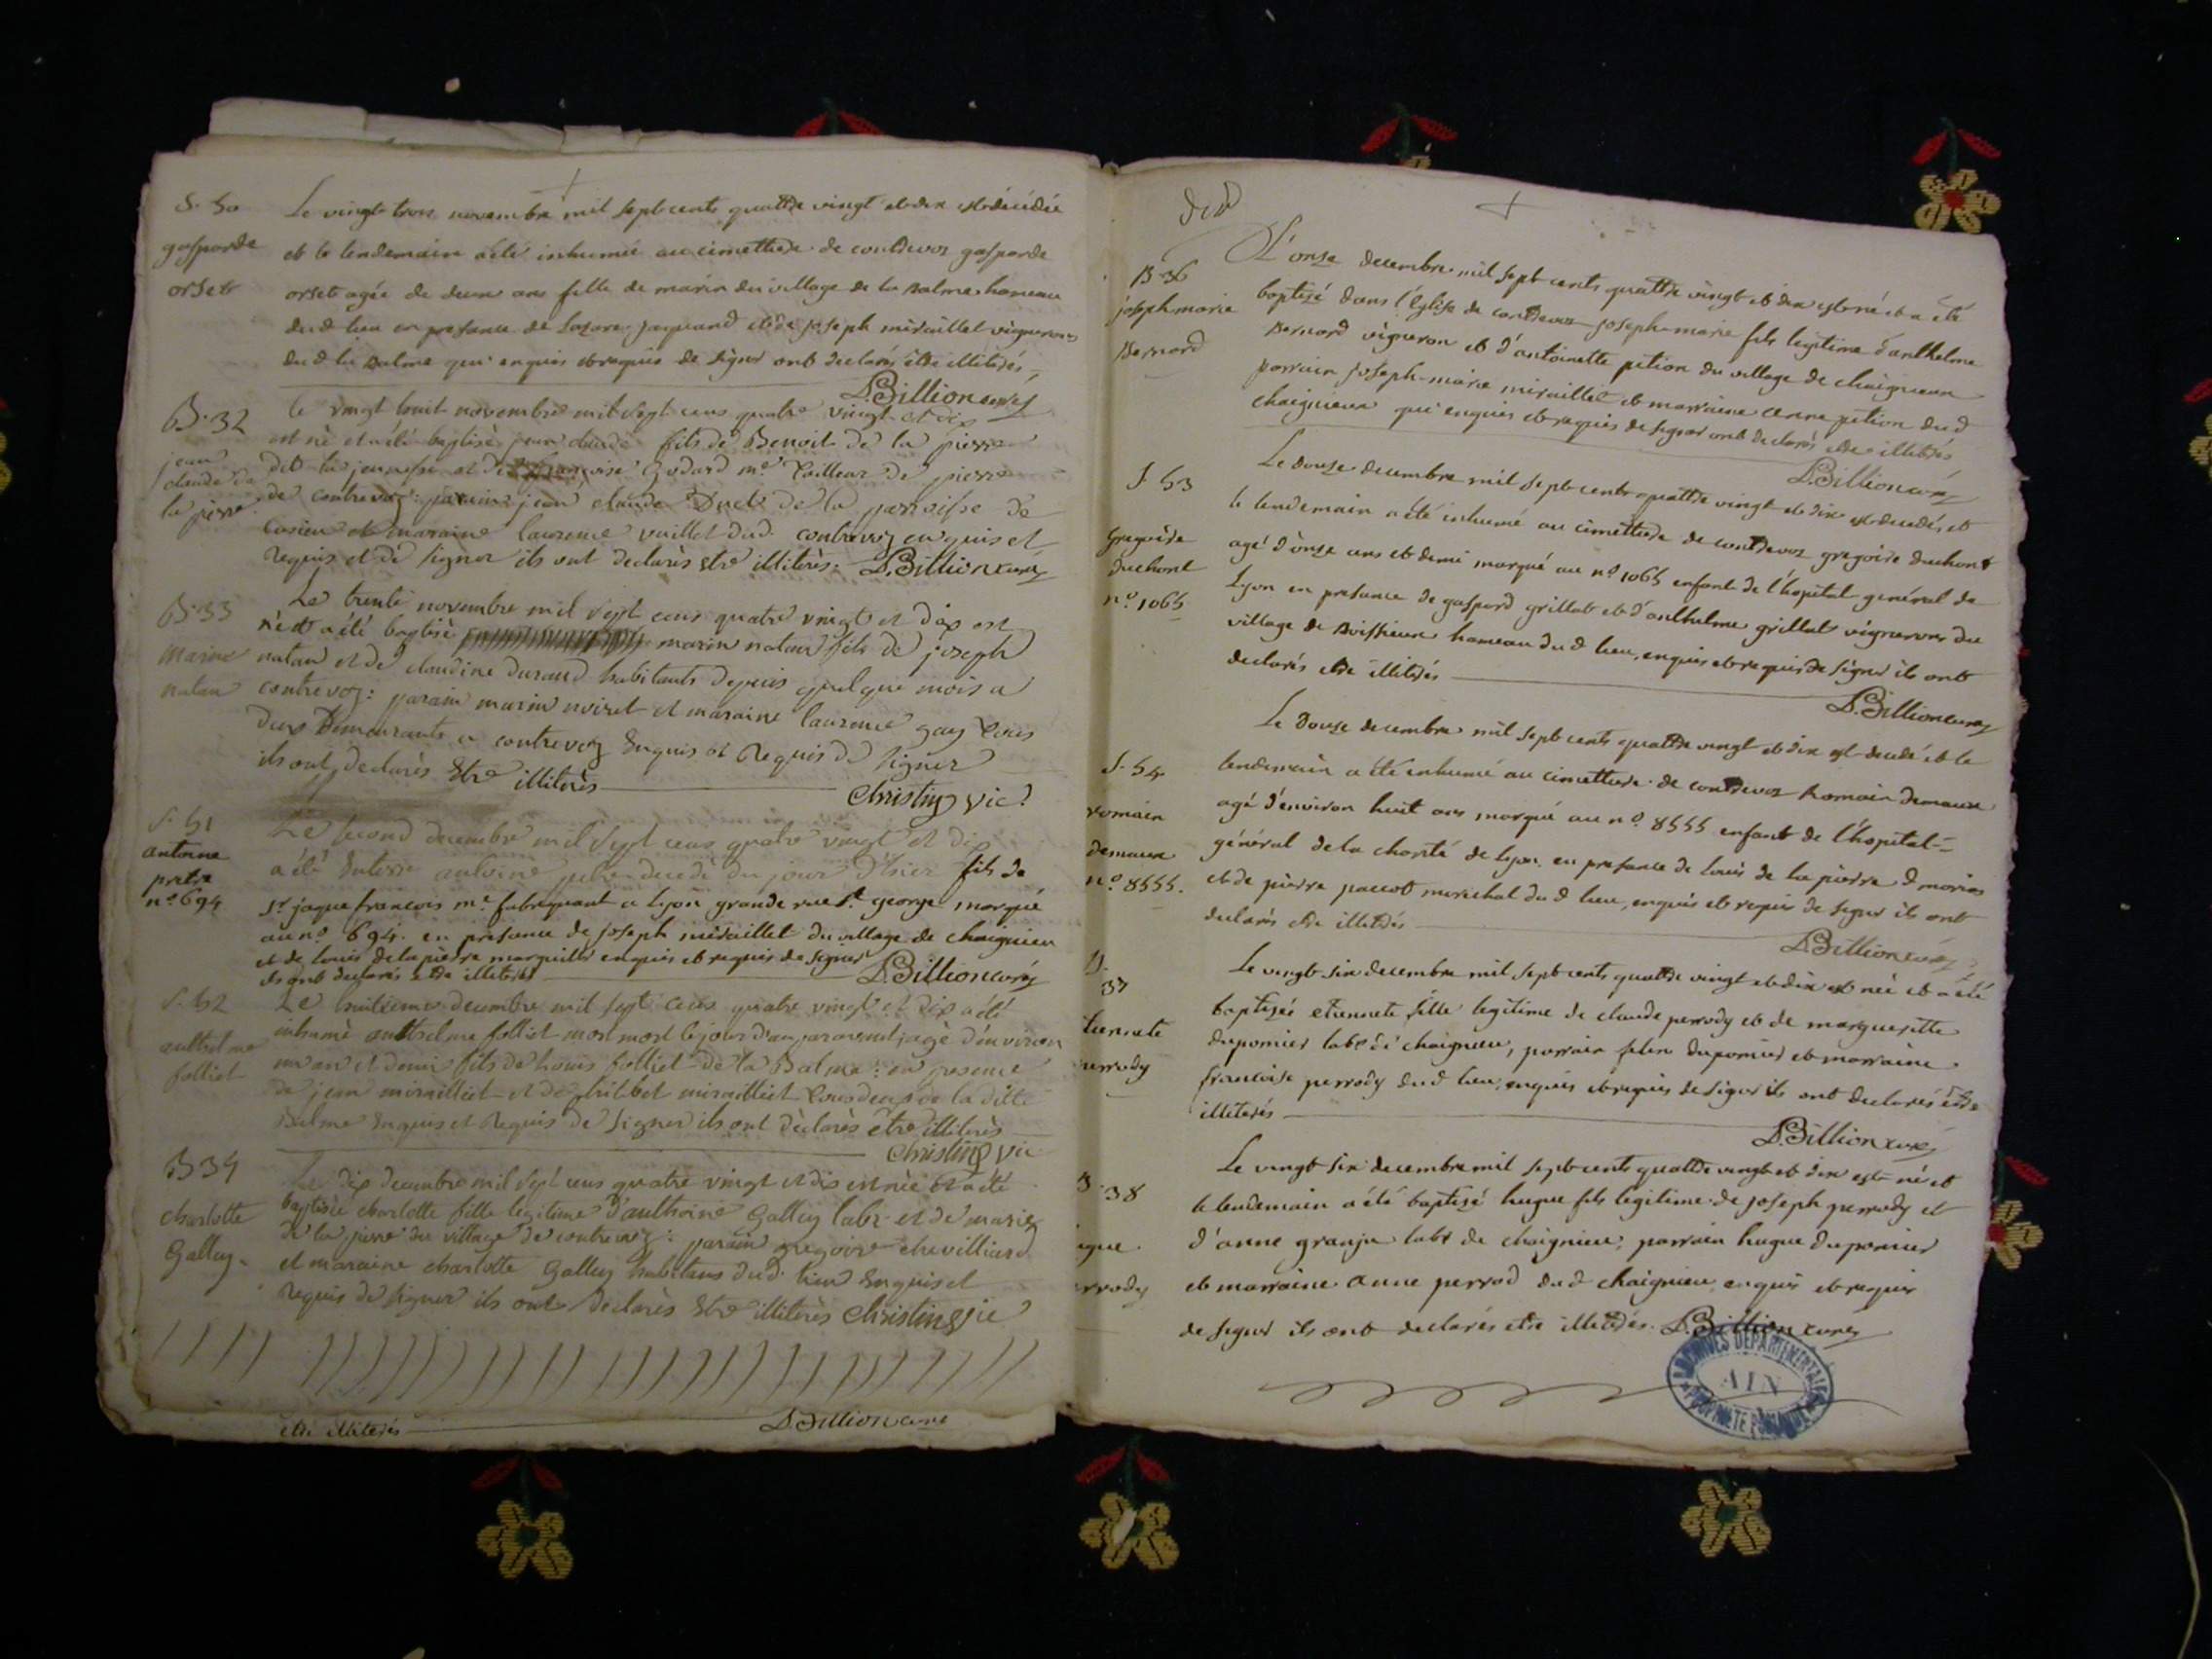 S. 50
gasparde
orset
Le vingt trois novembre mil sept cents quattre vingt et dix est décédée
et le lendemain a été inhumée au cimettiere de contrevoz gasparde
orset agée de deux ans fille de marin du village de la Balme hameau
dud lieu en presance de Lazare jaquand et de joseph miraillet vignerons
dud la Balme qui enquis et requis de signer ont declarés être illiterés
D. Billion curé
B. 32
jean
claude de
la pierre
le vingt huit novembre mil sept cens quatre vingt et dix
est né et a été baptisé jean claude fils de Benoit de la pierre
dit la jeunesse et de françoise Godard me tailleur de pierre
de contrevoz: parain jean claude Duck de la parroisse de
Cusieu et maraine laurence vuillet dud. contrevoz enquis et
requis et de signer ils ont declarès etre illiterès. D. Billion curé
B. 33
Marin
natan
Le trente novembre mil sept cens quatre vingt et dix est
né et a été baptisé marin natan fils de joseph
natan et de claudine durand habitants depuis quelque mois a
contrevoz: parain marin noiret et maraine laurence gay tous
deux demeurants a contrevoz enquis et requis de signer
ils ont declarès etre illiterès
Christin vic.
S. 51
antoine
pretre
no 694
Le second decembre mil sept cens quatre vingt et dix
a été enterré antoine decedé du jour d'hier fils de
sr jaque francois me fabriquant a lyon grande rue st george marqué
au no 694. en presance de joseph miraillet du village de chaignieu
et de louis delapierre marguillier enquis et requis de signer
ils ont declarés etre illiterés D. Billion curé
S. 52
anthelme
folliet
Le huitieme decembre mil sept cens quatre vingt et dix a été
inhumé anthelme folliet mort le jour d'auparavant, agé d'environ
un an et demi fils de louis folliet de la Balme: en presence
de jean mirailliet et de philibet mirailliet tous deux de la ditte
Balme enquis et requis de signer ils ont déclarès être illiterès
Christin vic
B 34
charlotte
Galley.
Le dix decembre mil sept cens quatre vingt et dix est née et a été
baptisée charlotte fille legitime d'anthoine Galley labr et de marie
de la pierre du village de contrevoz: parain gregoire chevilliard
et maraine charlotte Galley habitans dud. lieu enquis et
requis de signer ils ont declarès etre illiterès Christin vic
etre illiterés D. Billion curé
B. 36
joseph marie
Bernard
L'onze decembre mil sept cents quattre vingt et dix est né et a été
baptizé dans l'Eglise de contrevoz joseph-marie fils legitime d'anthelme
Bernard vigneron et d'antoinette pition du village de chaignieux
parrain joseph-marie miraillet et marraine anne pition dud
chaignieux qui enquis et requis de signer ont declarés etre illiterés
D. Billion curé
S. 53
Gregoire
duchont
no. 1065
Le douze decembre mil sept cents quattre vingt et dix est decedé, et
le lendemain a été inhumé au cimettiere de contrevoz gregoire duchont
agé d'onze ans et demi marqué au no 1065 enfant de l'hopital general de
Lyon en presance de gaspard grillet et d'anthelme grillet vignerons du
village de Boissieux hameau dud lieu, enquis et requis de signer ils ont
declarés etre illiterés
D. Billion curé
S. 54
romain
demaux
no. 8555.
Le douze decembre mil sept cents quattre vingt et dix est decedé et le
lendemain a été inhumé au cimettiere de contrevoz Romain demaux
agé d'environ huit ans marqué au no. 8555 enfant de l'hopital
général de la charité de lyon. en presance de louis de la pierre
et de pierre paccot marechal dud lieu, enquis et requis de signer ils ont
declarés etre illiterés
D. Billion curé
37
tiennete
errody
Le vingt six decembre mil sept cents quattre vingt et dix est née et a été
baptizée etiennete fille legitime de claude perrody et de margueritte
dupomier labr de chaignieu, parrain dupomier et marraine
francoise perrody dud lieu, enquis et requis de signer ils ont declarés être
illiterés
D. Billion curé
B. 38
ugue
errody
Le vingt six decembre mil sept cents quattre vingt et dix est né et
le lendemain a été baptizé hugue fils legitime de joseph perrody et
d'anne granju labr de chaignieu, parrain hugue dupomier
et marraine anne perrod dud chaignieu, enquis et requis
de signer ils ont declarés etre illiterés. D. Billion curé
ARCHIVES DÉPARTEMENTALES
AIN
PROPRIÉTÉ PUBLIQUE